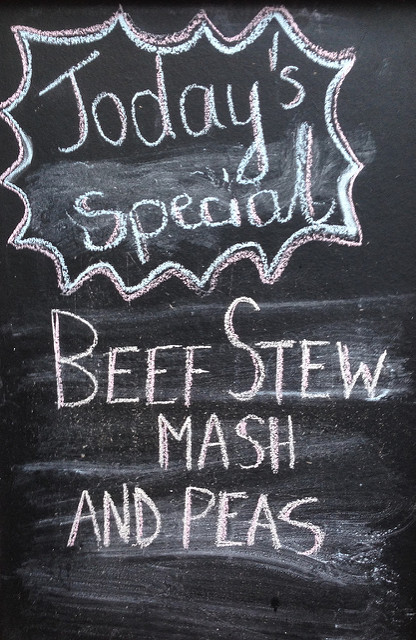 Today's
Special
BEEF STEW
MASH
AND PEAS